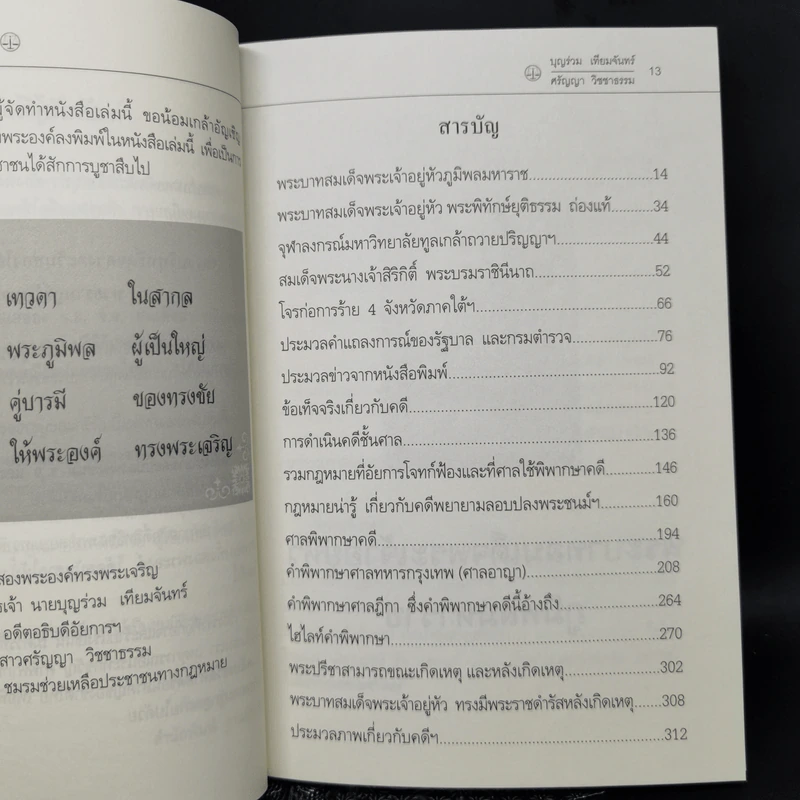 ผู้จัดทำหนังสือเล่มนี้ ขอน้อมเกล้าอัญเชิญ
พระองค์ลงพิมพ์ในหนังสือเล่มนี้ เพื่อเป็นการ
ชาชนได้สักการบูชาสืบไป
เทวดา ในสากล
พระภูมิพล ผู้เป็นใหญ่
คู่บารมี ของทรงชัย
ให้พระองค์ ทรงพระเจริญ
สองพระองค์ทรงพระเจริญ
นายบุญร่วม เทียมจันทร์
อดีตอธิบดีอัยการฯ
สาวศรัญญา วิชชาธรรม
ชมรมช่วยเหลือประชาชนทางกฎหมาย
บุญร่วม เทียมจันทร์
ศรัญญา วิชชาธรรม
13
สารบัญ
พระบาทสมเด็จพระเจ้าอยู่หัวภูมิพลมหาราช...................14
พระบาทสมเด็จพระเจ้าอยู่หัว พระพิทักษ์ยุติธรรม ถ่องแท้.......34
จุฬาลงกรณ์มหาวิทยาลัยทูลเกล้าถวายปริญญาฯ..............44
สมเด็จพระนางเจ้าสิริกิติ์ พระบรมราชินีนาถ..................52
โจรก่อการร้าย 4 จังหวัดภาคใต้ฯ...........................66
ประมวลคำแถลงการณ์ของรัฐบาล และกรมตำรวจ.............76
ประมวลข่าวจากหนังสือพิมพ์...............................92
ข้อเท็จจริงเกี่ยวกับคดี....................................120
การดำเนินคดีชั้นศาล.....................................136
รวมกฎหมายที่อัยการโจทก์ฟ้องและที่ศาลใช้พิพากษาคดี.......146
กฎหมายน่ารู้ เกี่ยวกับคดีพยายามลอบปลงพระชนม์ฯ.........160
ศาลพิพากษาคดี.........................................194
คำพิพากษาศาลทหารกรุงเทพ (ศาลอาญา)..................208
คำพิพากษาศาลฎีกา ซึ่งคำพิพากษาคดีนี้อ้างถึง.............264
ไฮไลท์คำพิพากษา.......................................270
พระปรีชาสามารถขณะเกิดเหตุ และหลังเกิดเหตุ.............302
พระบาทสมเด็จพระเจ้าอยู่หัว ทรงมีพระราชดำรัสหลังเกิดเหตุ......308
ประมวลภาพเกี่ยวกับคดีฯ.................................312